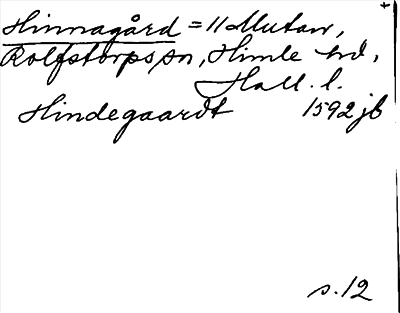 Hinnagård = 11 Mutan,
Rolfstorps sn, Himle hd,
Hall. l.
Hindegaardt 1592 jb
s. 12